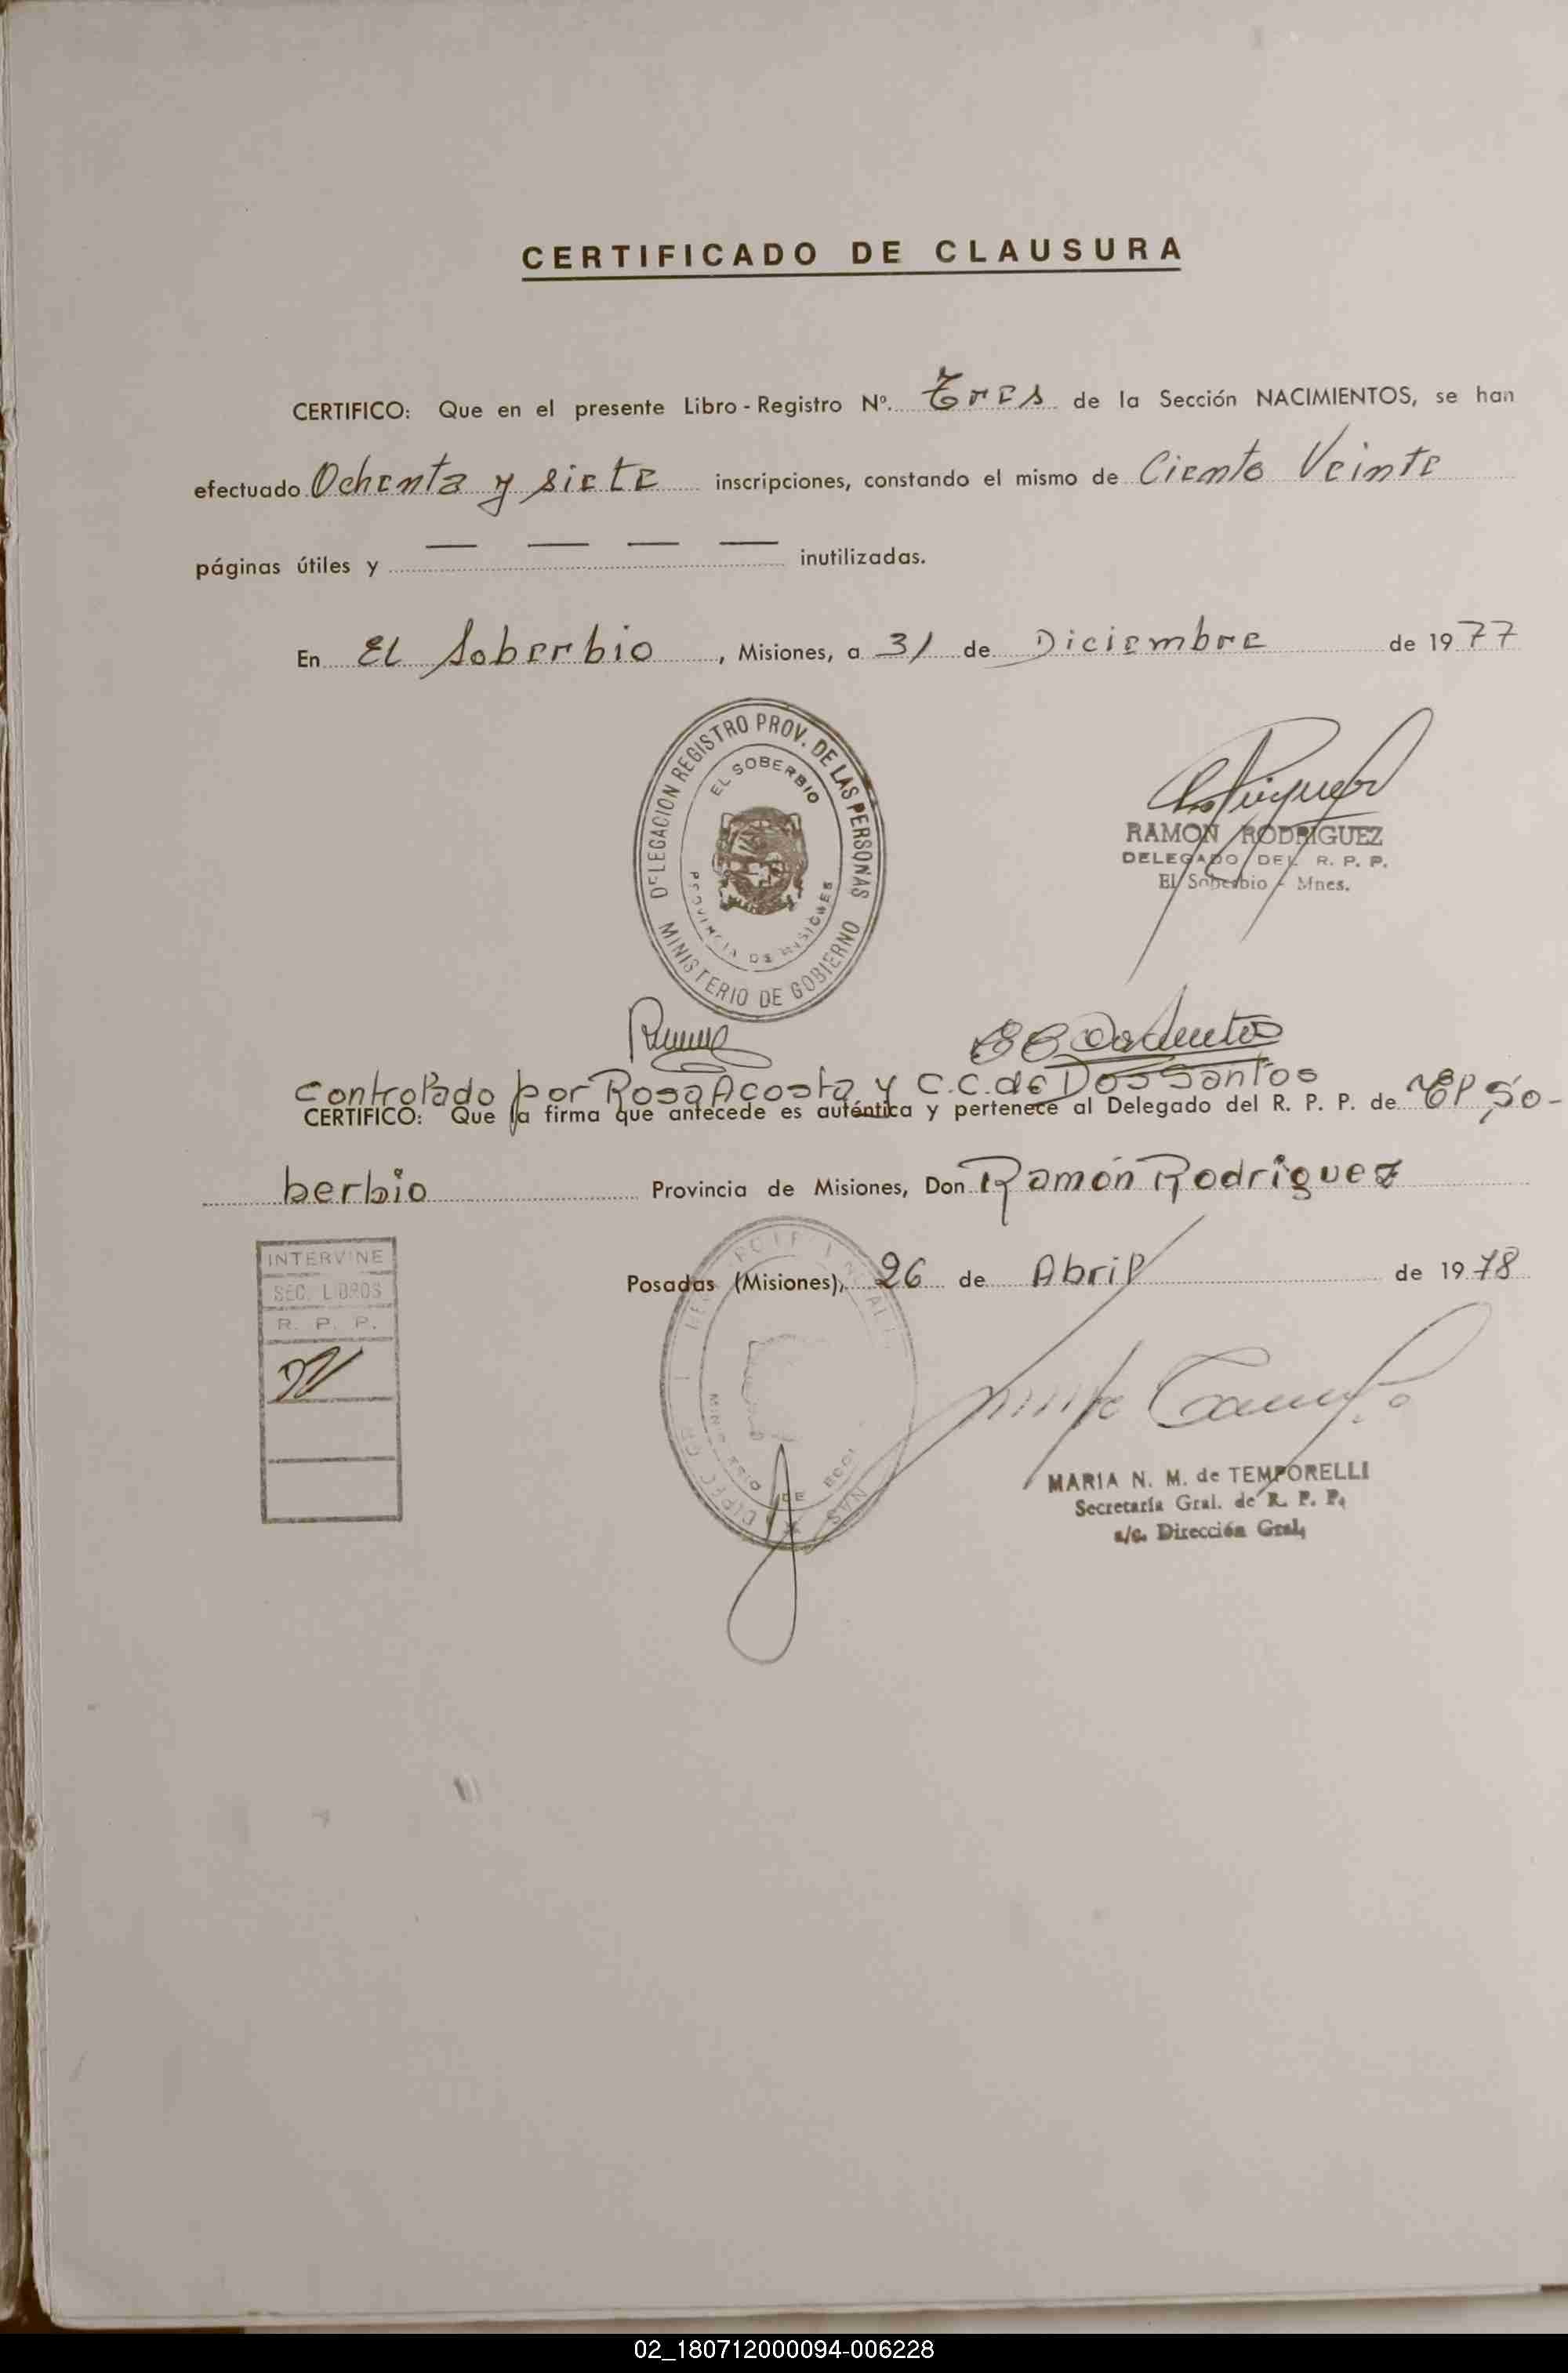 CERTIFICADO DE CLAUSURA
CERTIFICO: Que en el presente Libro - Registro Nº. Tres de la Sección NACIMIENTOS, se han
efectuado Ochenta y siete inscripciones, constando el mismo de Ciento Veinte
páginas útiles y — — — — inutilizadas.
En El Soberbio, Misiones, a 31 de Diciembre de 1977
DELEGACION REGISTRO PROV. DE LAS PERSONAS
EL SOBERBIO
PROVINCIA DE MISIONES
MINISTERIO DE GOBIERNO
RAMON RODRIGUEZ
DELEGADO DEL R. P. P.
El Soberbio - Mnes.
Controlado por Rosa Acosta y C.C. de Dos Santos
CERTIFICO: Que la firma que antecede es auténtica y pertenece al Delegado del R. P. P. de El So-
berbio Provincia de Misiones, Don Ramón Rodriguez
Posadas (Misiones), 26 de Abril de 1978
INTERVINE
SEC. LIBROS
R. P. P.
MARIA N. M. de TEMPORELLI
Secretaría Gral. de R. P. P.
a/c. Dirección Gral.
02_180712000094-006228